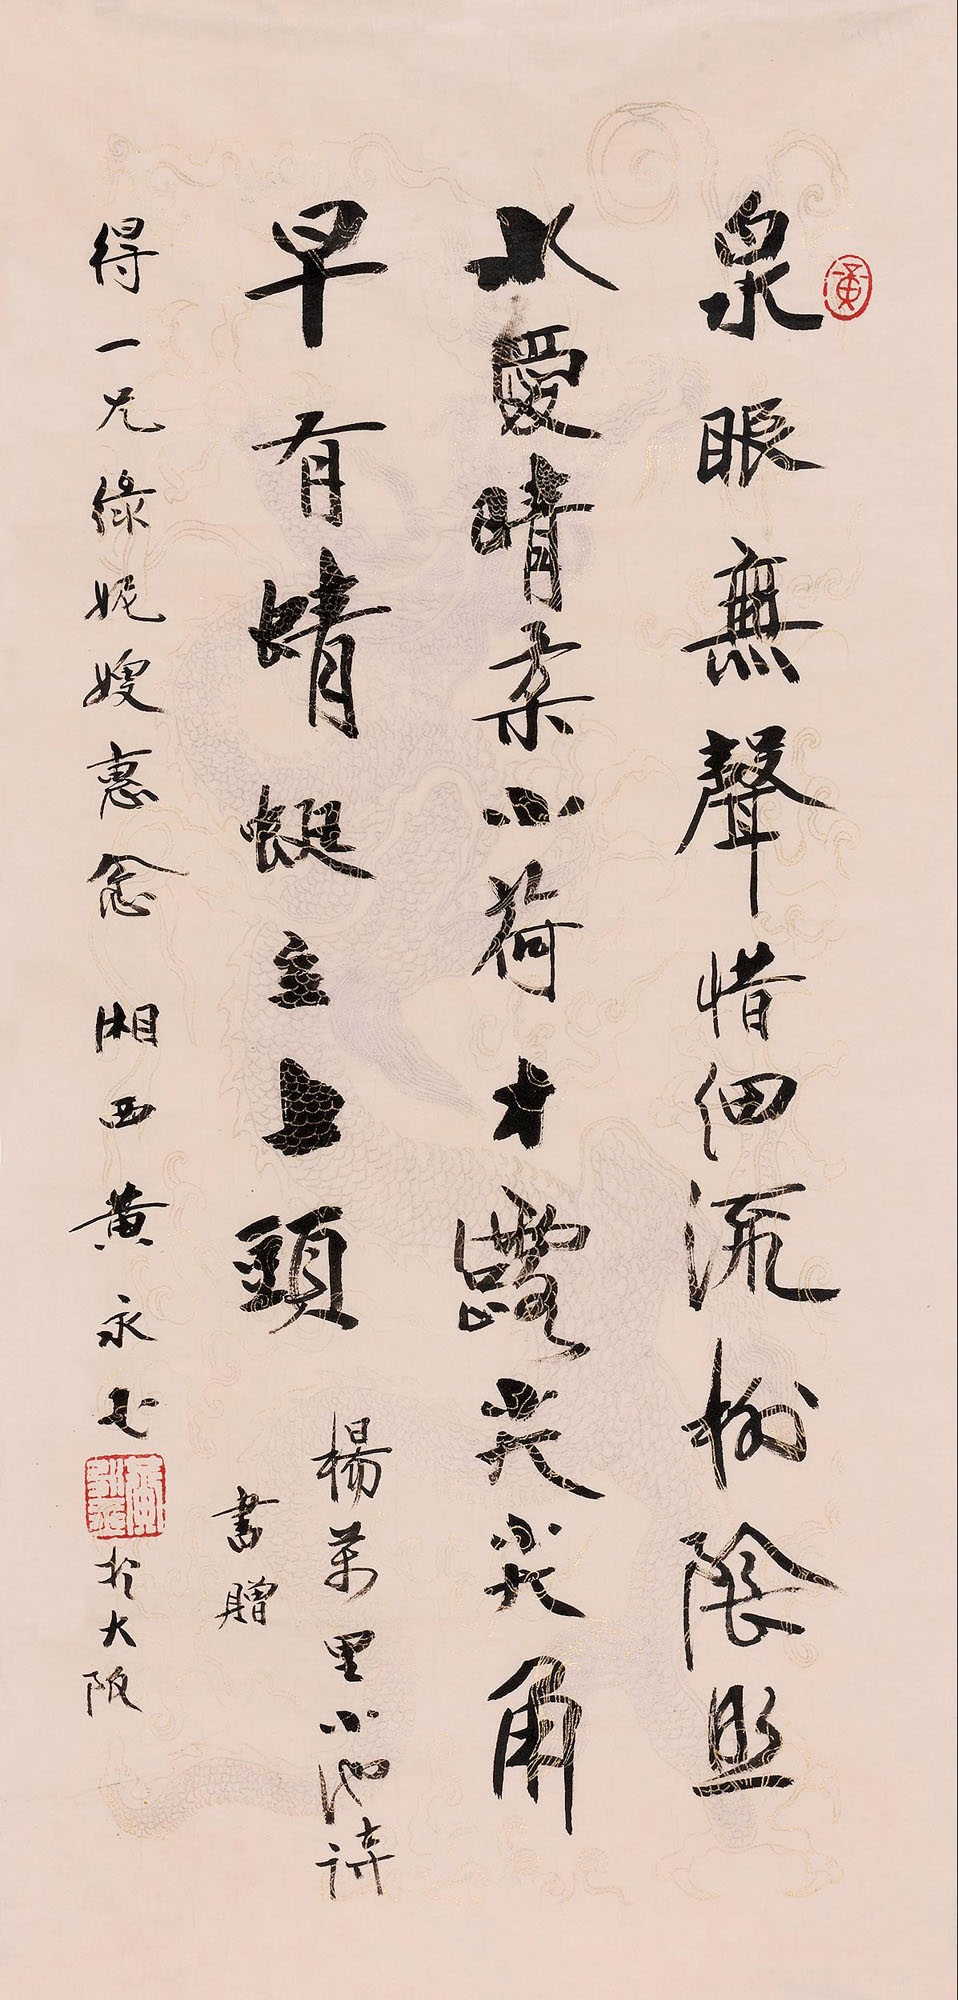 黃
泉眼無聲惜細流樹陰照
水愛晴柔小荷才露尖尖角
早有蜻蜓立上頭
楊萬里小池詩
書贈
得一兄綠妮嫂惠念 湘西黃永玉 於大阪